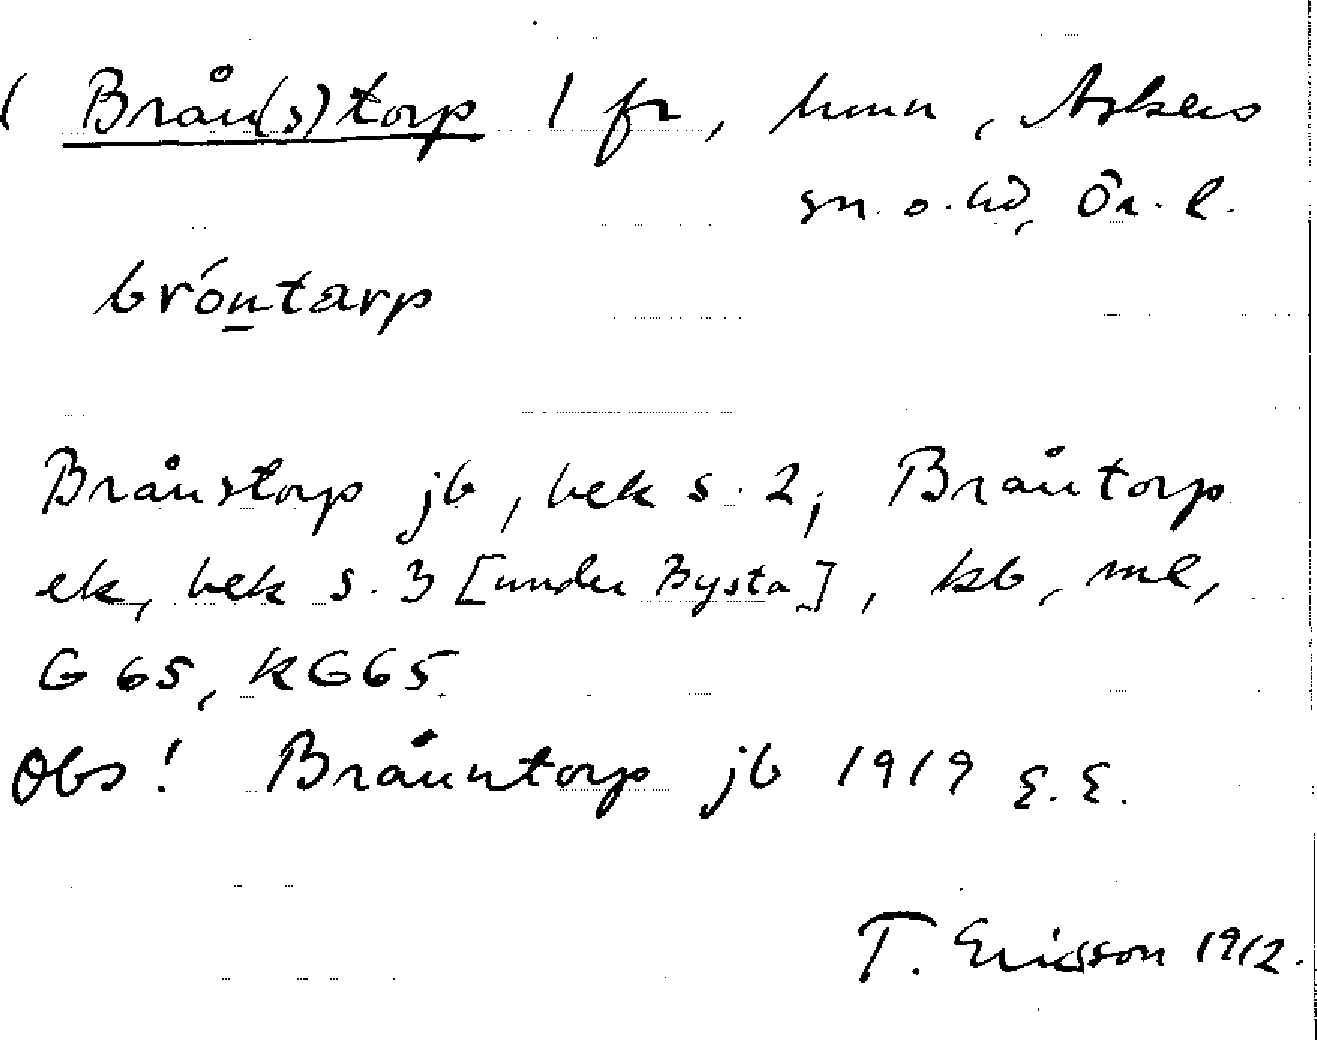 ( Bråu(s)torp 1 fr, hmn, Askers
sn. o. hd, Ör. l.
bróntarp
Bråustorp jb, bek s. 2; Bråutorp
ek, bek s. 3 [under Bysta], kb, ml,
G 65, KG65.
Obs! Bråuntorp jb 1919 E. E.
T. Ericsson 1912.